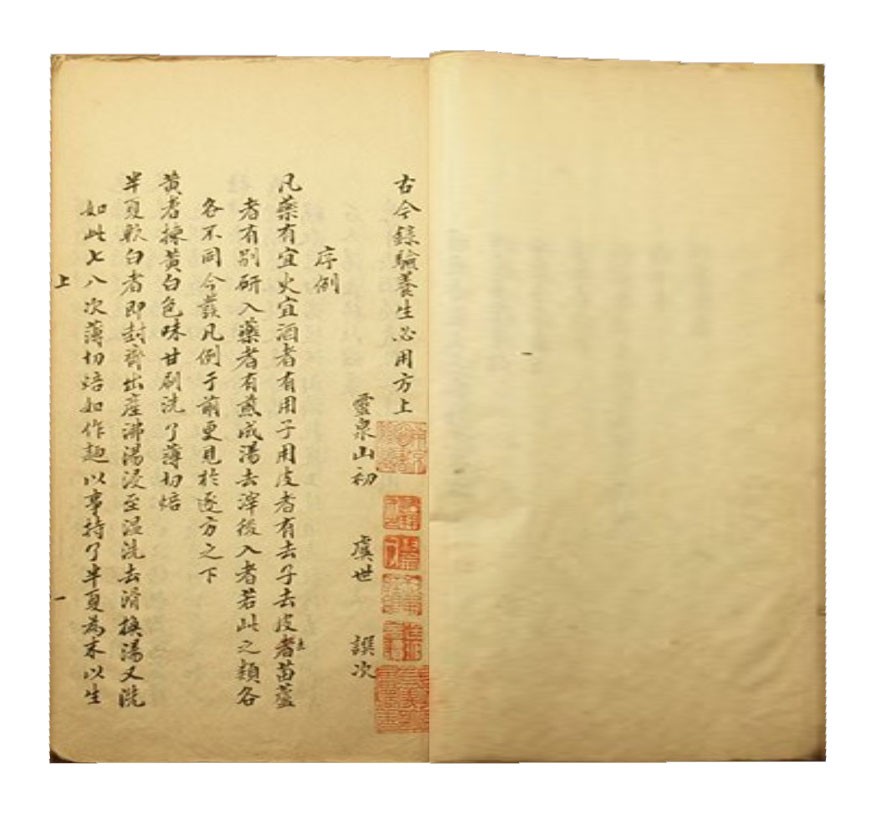 古今錄驗養生必用方上
靈泉山初 虞世 譔次
序例
凡藥有宜火宜酒者有用子用皮者有去子去皮者去苗蘆
者有別研入藥者有煎成湯去滓後入者若此之類各
各不同今發凡例于前更見於逐方之下
黃耆揀黃白色味甘刷洗了薄切焙
半夏軟白者即封齊出產沸湯浸至溫洗去滑換湯又洗
如此七八次薄切焙如作麯以事持了半夏為末以生
上 一